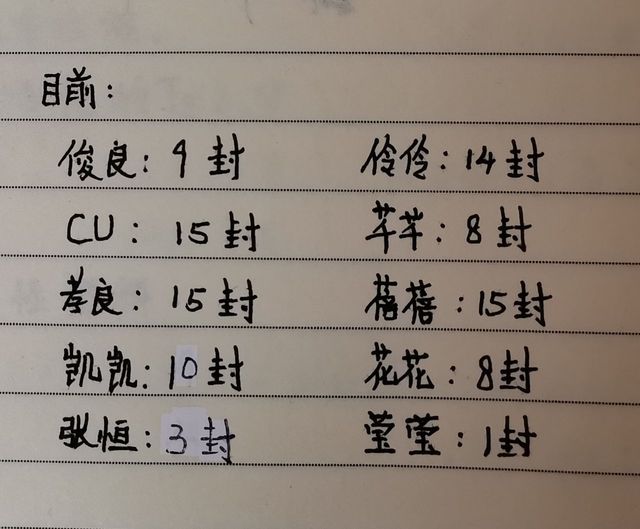 目前:
俊良: 9 封 伶伶: 14 封
CU: 15 封 芊芊: 8 封
孝良: 15 封 蓓蓓: 15 封
凯凯: 10 封 花花: 8 封
耿恒: 3 封 莹莹: 1 封